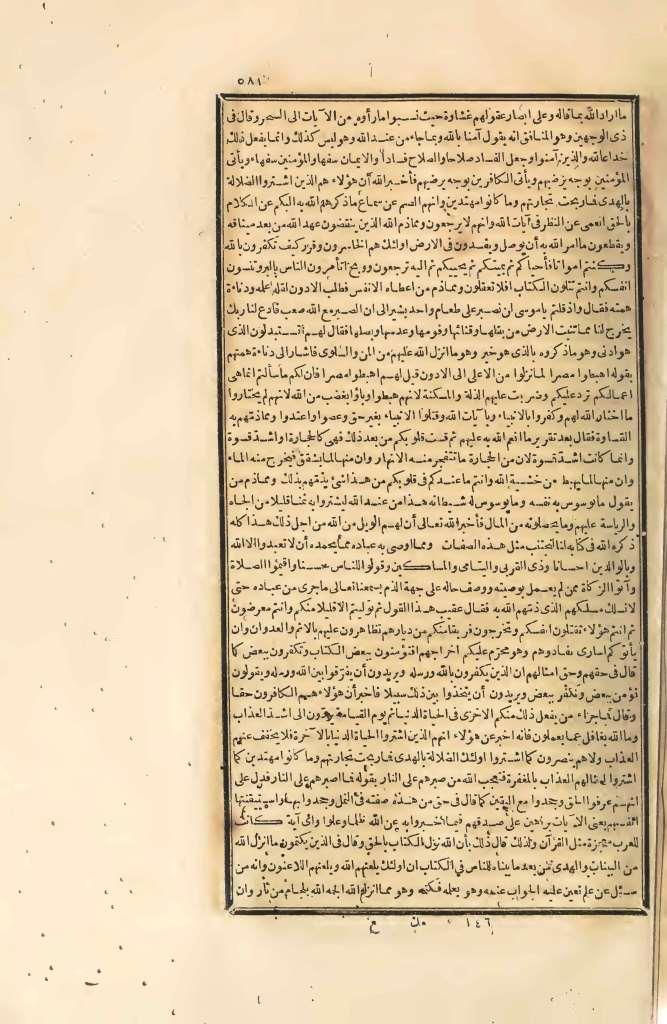 ٥٨١
ما اراد الله بما قاله وعلى ابصار عقولهم غشاوة حيث نسبوا ما رأوه من الآيات الى السحر وقال فى
ذى الوجهين وهو المنافق انه يقول آمنا بالله وبما جاء من عند الله وهو ليس كذلك وانما يفعل ذلك
خداعا لله والذين آمنوا وجعل الفساد صلاحا والصلاح فسادا والايمان سفها والمؤمنين سفهاء ويأتى
المؤمنين بوجه يرضيهم ويأتى الكافرين بوجه يرضيهم فأخبر الله أن هؤلاء هم الذين اشتروا الضلالة
بالهدى فما ربحت تجارتهم وما كانوا مهتدين وانهم الصم عن سماع ما ذكرهم الله به البكم عن الكلام
بالحق العمى عن النظر فى آيات الله وانهم لا يرجعون ومما ذم الله الذين ينقضون عهد الله من بعد ميثاقه
ويقطعون ما امر الله به أن يوصل ويفسدون فى الارض اولئك هم الخاسرون وقرر كيف تكفرون بالله
وكنتم امواتا فأحياكم ثم يميتكم ثم يحييكم ثم اليه ترجعون ووبخ أتأمرون الناس بالبر وتنسون
انفسكم وانتم تتلون الكتاب افلا تعقلون ومما ذم من اعطاه الانفس فطلب الادون لقلة علمه ودناءة
همته فقال واذ قلتم يا موسى لن نصبر على طعام واحد يشير الى ان الصبر مع الله صعب فادع لنا ربك
يخرج لنا مما تنبت الارض من بقلها وقثائها وفومها وعدسها وبصلها فقال لهم أتستبدلون الذى
هو ادنى وهو ما ذكروه بالذى هو خير وهو ما انزل الله عليهم من المن والسلوى فاشار الى دناءة همتهم
بقوله اهبطوا مصرا لما نزلوا من الاعلى الى الادون قيل لهم اهبطوا مصرا فان لكم ما سألتم انما هى
اعمالكم ترد عليكم وضربت عليهم الذلة والمسكنة لانهم هبطوا وباؤا بغضب من الله لانهم لم يختاروا
ما اختار الله لهم وكفروا بالانبياء وبآيات الله وقتلوا الانبياء بغير حق وعصوا واعتدوا ومما ذمهم به
القساوة فقال بعد تقرير ما انعم الله به عليهم ثم قست قلوبكم من بعد ذلك فهى كالحجارة او اشد قسوة
وانما كانت اشد قسوة لان من الحجارة ما تتفجر منه الانهار وان منها لما يشقق فيخرج منه الماء
وان منها لما يهبط من خشية الله وانتم ما عندكم فى قلوبكم من هذا شئ يذمهم بذلك ومما ذم من
يقول ما توسوس به نفسه وما يوسوس له شيطانه هذا من عند الله ليشتروا به ثمنا قليلا من الجاه
والرياسة عليهم وما يحصلونه من المال فأخبر الله تعالى أن لهم الويل من الله من اجل ذلك هذا كله
ذكره الله فى كتابه لنا لنجتنب مثل هذه الصفات ومما اوصى به عباده مما يحمده أن لا تعبدوا الا الله
وبالوالدين احسانا وذى القربى واليتامى والمساكين وقولوا للناس حسنا واقيموا الصلاة
وآتوا الزكاة ممن لم يعمل بوصيته ووصف حاله على جهة الذم يسمعنا تعالى ما جرى من عباده حتى
لا نسلك مسلكهم الذى ذمهم الله به فقال عقيب هذا القول ثم توليتم الا قليلا منكم وانتم معرضون
ثم انتم هؤلاء تقتلون انفسكم وتخرجون فريقا منكم من ديارهم تظاهرون عليهم بالاثم والعدوان وان
يأتوكم اسارى تفادوهم وهو محرم عليكم اخراجهم افتؤمنون ببعض الكتاب وتكفرون ببعض كما
قال فى حقهم وحق امثالهم ان الذين يكفرون بالله ورسله ويريدون أن يفرقوا بين الله ورسله ويقولون
نؤمن ببعض ونكفر ببعض ويريدون أن يتخذوا بين ذلك سبيلا فأخبر أن هؤلاء هم الكافرون حقا
وقال فما جزاء من يفعل ذلك منكم الا خزى فى الحياة الدنيا ثم يوم القيامة يردون الى اشد العذاب
وما الله بغافل عما يعملون فانه اخبر عن هؤلاء انهم الذين اشتروا الحياة الدنيا بالآخرة فلا يخفف عنهم
العذاب ولا هم ينصرون كما اشتروا اولئك الضلالة بالهدى فما ربحت تجارتهم وما كانوا مهتدين كما
اشتروا امثالهم العذاب بالمغفرة فتعجب الله من صبرهم على النار بقوله فما اصبرهم على النار فدل على
انهم عرفوا الحق وجحدوا مع اليقين كما قال فى حق من هذه صفته فى النمل وجحدوا بها واستيقنتها
انفسهم يعنى الآيات براهين على صدقهم فيما اخبروا به عن الله ظلما وعلوا واى آية كانت
للعرب معجزة مثل القرآن ولذلك قال ذلك بأن الله نزل الكتاب بالحق وقال فى الذين يكتمون ما انزل الله
من البينات والهدى من بعد ما بيناه للناس فى الكتاب ان اولئك يلعنهم الله ويلعنهم اللاعنون وانه من
سئل عن علم تعين عليه الجواب عنه وهو يعلمه فكتمه وهو مما انزله الله الجمه الله بلجام من نار وان
١٤٦